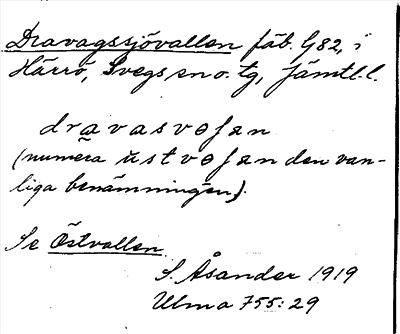 Dravagssjövallen fäb. G82, i
Härrö, Svegs sn o. tg, Jämtl. l.
dravasvɵlan
(numera ustvɵlan den van-
liga benämningen).
Se Östvallen.
S. Åsander 1919
Ulma 755:29